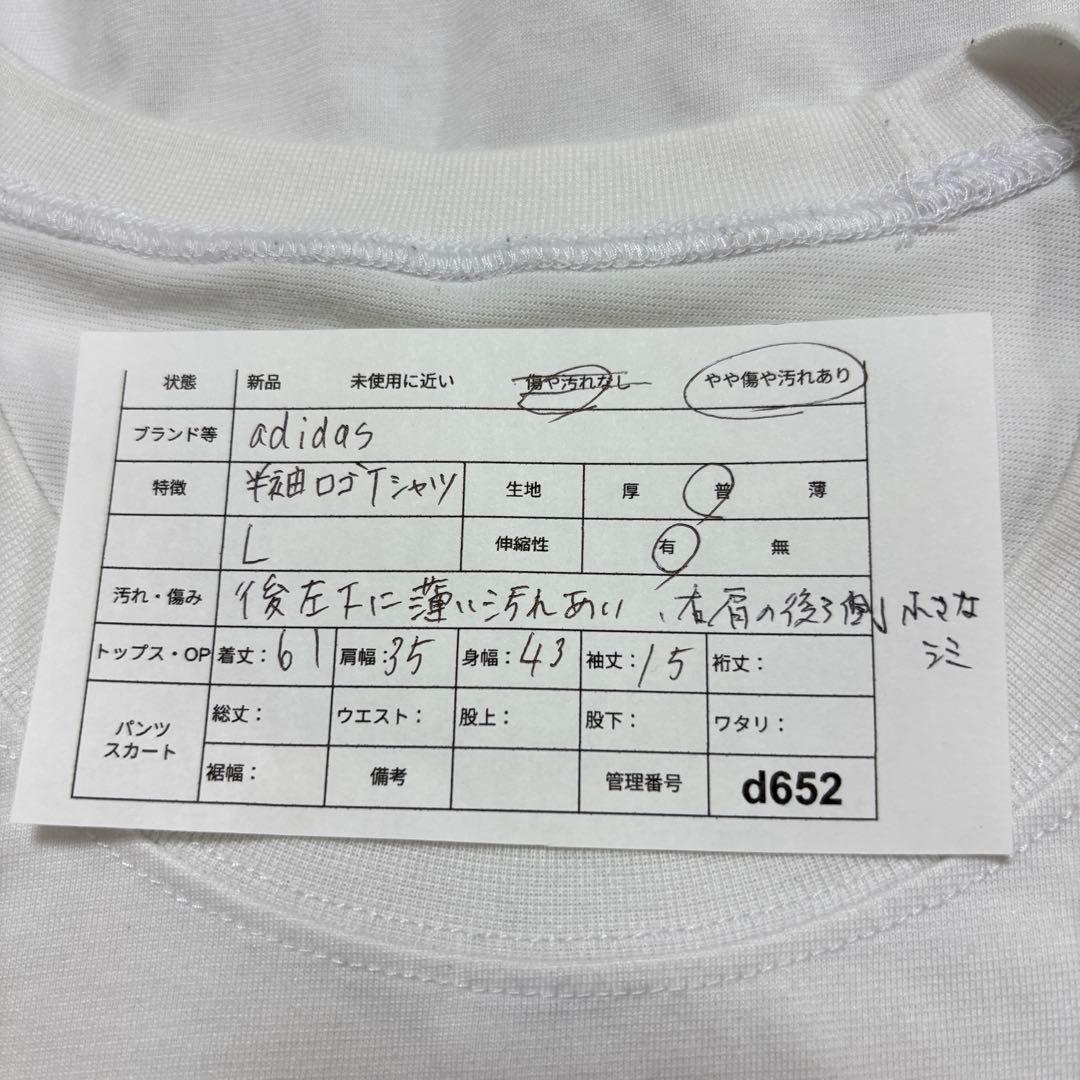 状態 新品 未使用に近い 傷や汚れなし やや傷や汚れあり
ブランド等 adidas
特徴 半袖ロゴTシャツ 生地 厚 普 薄
L 伸縮性 有 無
汚れ・傷み 後左下に薄い汚れあい、右肩の後ろ側小さな
シミ
トップス・OP 着丈：61 肩幅：35 身幅：43 袖丈：15 裄丈：
パンツ
スカート
総丈： ウエスト： 股上： 股下： ワタリ：
裾幅： 備考 管理番号 d652